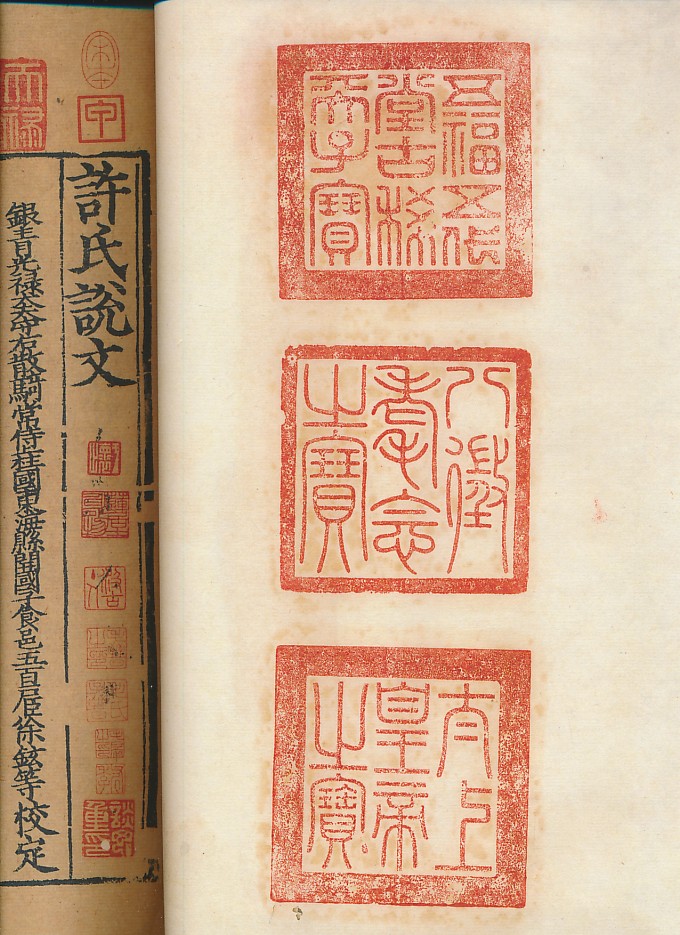 五福五代
堂古稀
天子寶
八徵
耄念
之寶
太上
皇帝
之寶
宋本
甲
許氏說文
銀青光祿大夫守右散騎常侍上柱國東海縣開國子食邑五百戶臣徐鉉等校定
天祿